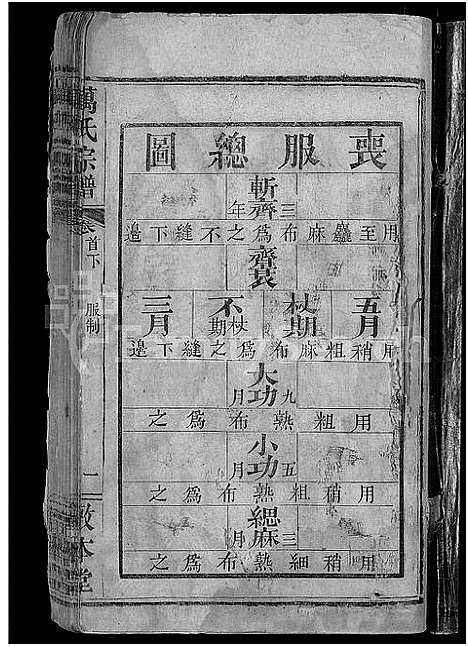 喪服總圖
斬齊三年
用至麤麻布為之不縫下邊
齊衰
五月
杖期
不杖期
三月
用稍粗麻布為之縫下邊
大功九月
用粗熟布為之
小功五月
用稍粗熟布為之
緦麻三月
用稍細熟布為之
萬氏宗譜
卷首下
服制
二
敦本堂